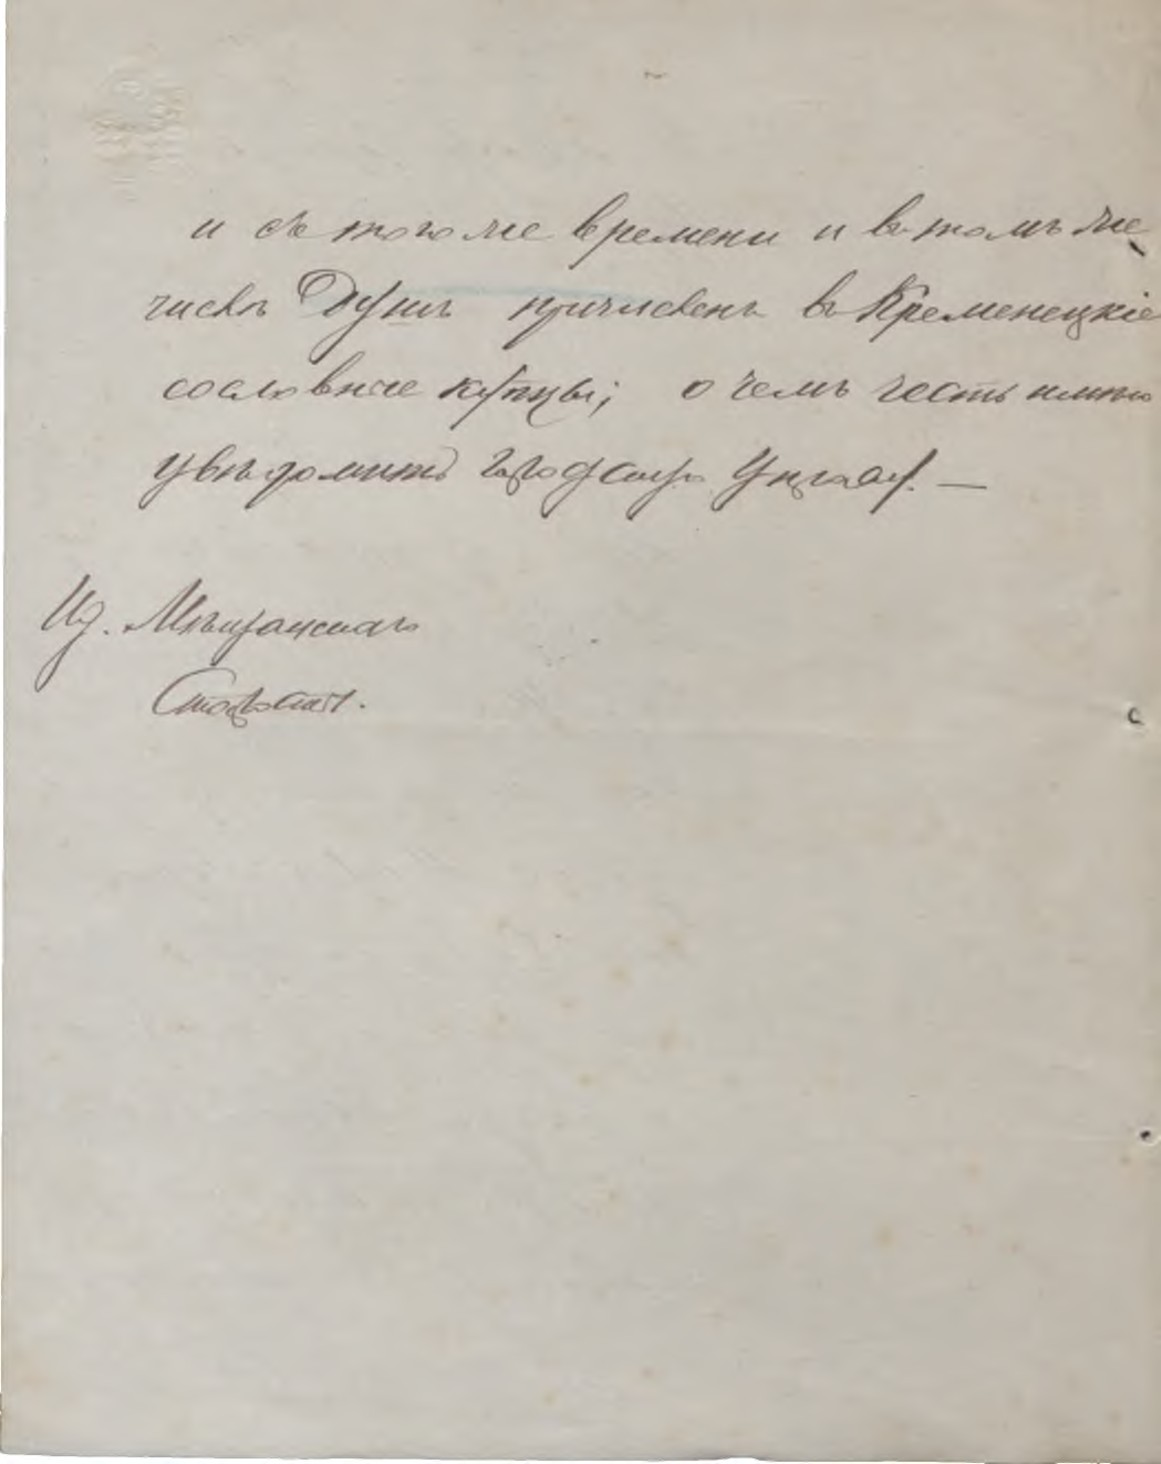 и съ того же времени и въ томъ же
числѣ душъ причисленъ въ Кременецкіе
сословные купцы; о чемъ честь имѣю
увѣдомить Городскую Управу. —
Из. Мѣщанскій
Староста.